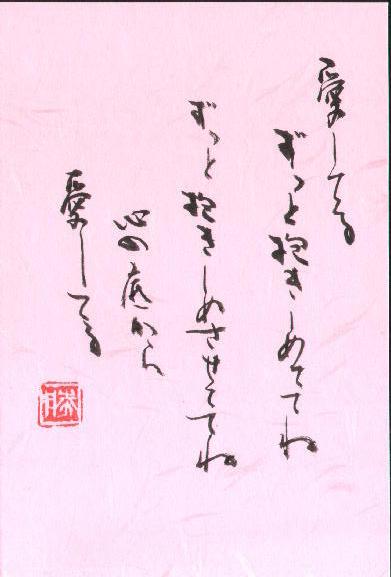 愛してる
ずっと抱きしめててね
ずっと抱きしめさせててね
心の底から
愛してる